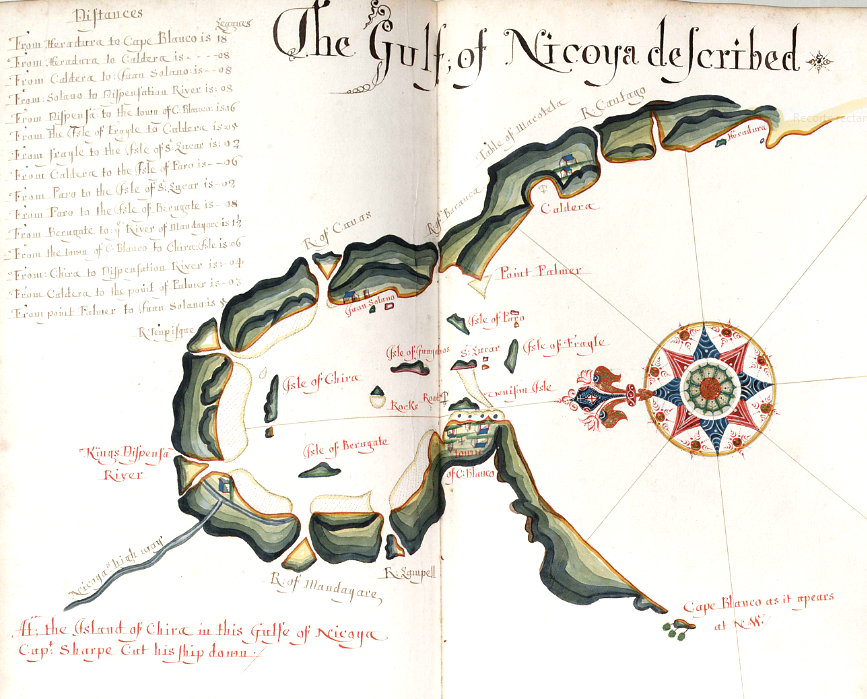 The Gulf, of Nicoya described
Distances
Leagues
From Heradura to Cape Blanco is 18
From Heradura to Caldera is - - - -08
From Caldera to Iuan Solano is - - 08
From: Solano to Dispensation River is: 08
From Dispensa to the town of C: Blanco: is 06
From the Isle of Fragle to Caldera is
From fragle to the Isle of St Lucar is: 02
From Caldera to the Isle of Paro is - -06
From Paro to the Isle of St Lucar is - 02
From Paro to the Isle of Berugate is - 08
From Berugate to: ye River of Mandayare is
From the town of C: Blanco to Chira Isle is 06
From: Chira to Dispensation River is: 04
From Caldera to the point of Palmer is - 02
From point Palmer to Iuan Solano is
Table of Macotela
R. Cantayo
Heradura
Caldera
R of Baranca
Point Palmer
R of Canas
Iuan Solano
R: tenpisque
Isle of Paro
Isle of Fragle
St Lucar
Isle of Chira
Rocks
Isle
Isle of Berugate
Kings Dispensa
River
of C: Blanco
Nicoyas high way
R: of Mandayare,
R: Lampell
Cape Blanco as it apears
at NW:
At, the Island of Chira in this Gulfe of Nicoya
Capt Sharpe Cut his ship down: